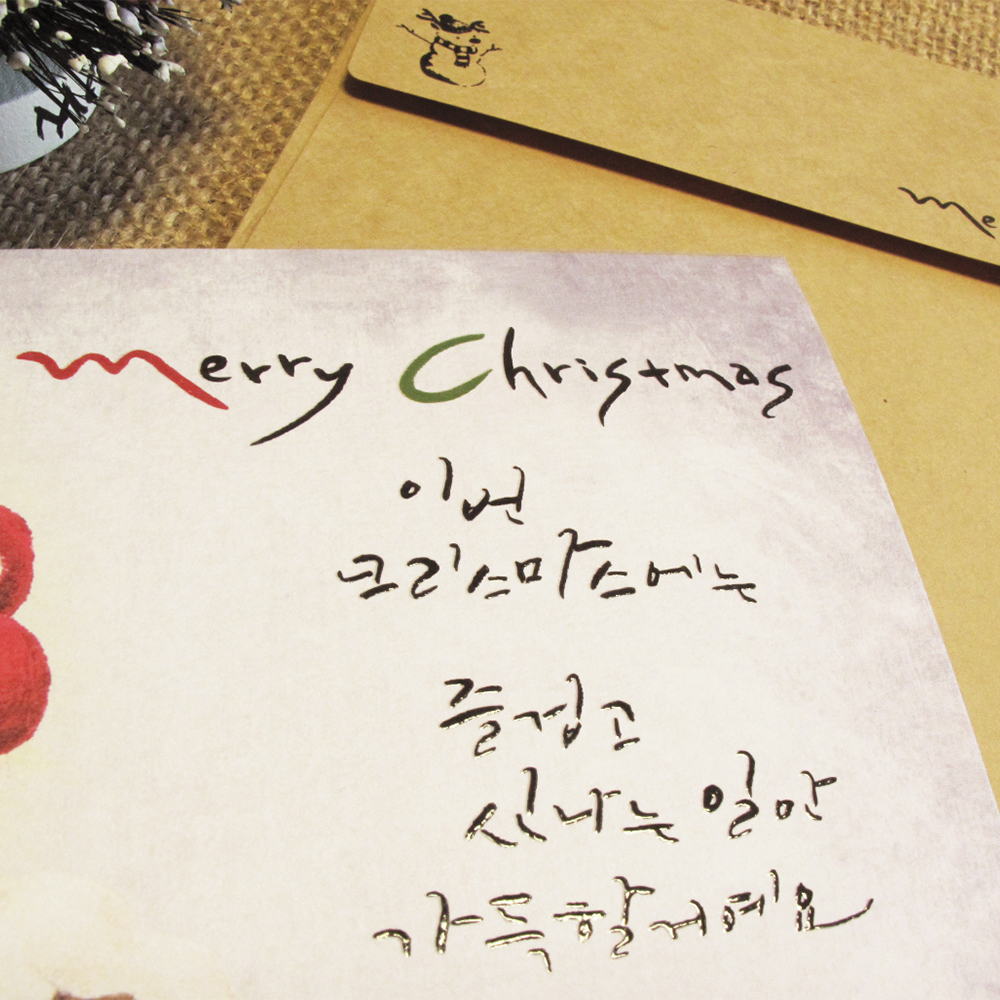 Me
Merry Christmas
이번
크리스마스에는
즐겁고
신나는 일만
가득할거예요